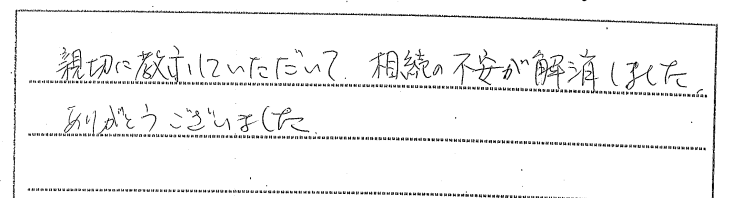 親切に教示していただいて、相続の不安が解消しました。
ありがとうございました。